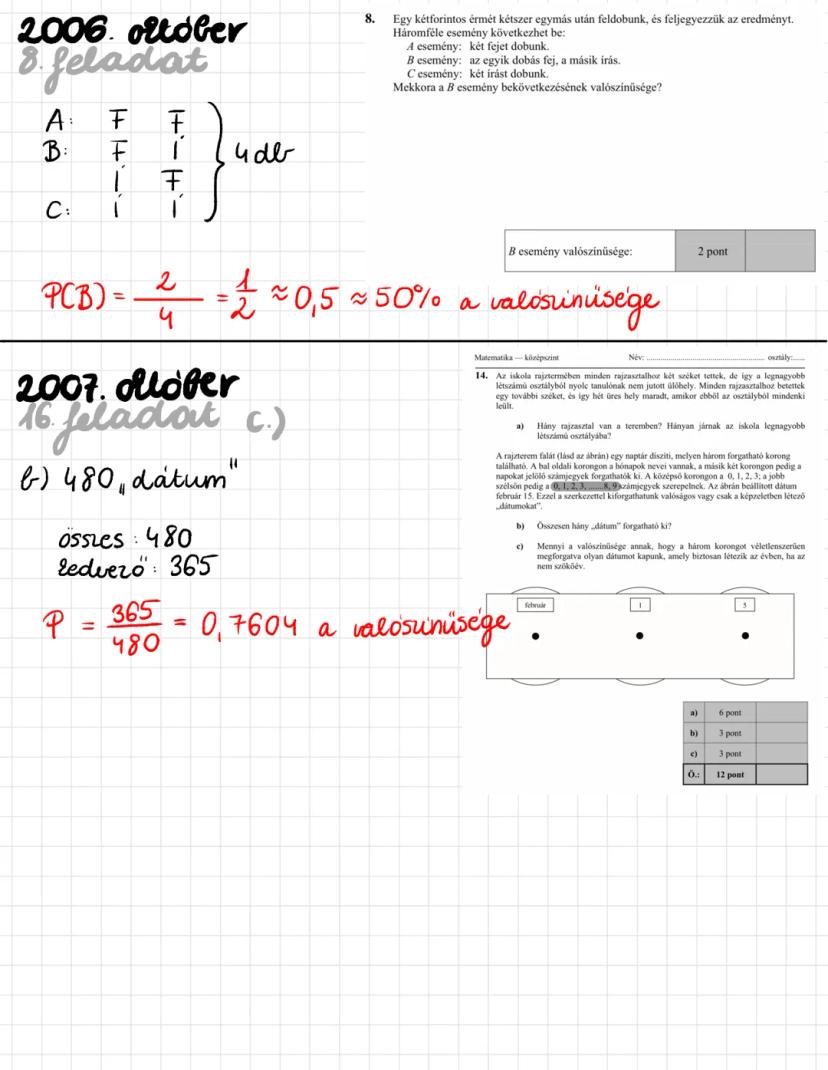 2006. október
8. feladat
8. Egy kétforintos érmét kétszer egymás után feldobunk, és feljegyezzük az eredményt.
Háromféle esemény következhet be:
A esemény: két fejet dobunk.
B esemény: az egyik dobás fej, a másik írás.
C esemény: két írást dobunk.
Mekkora a B esemény bekövetkezésének valószínűsége?
A: F F
B: F Í
Í F
C: Í Í
4 db
B esemény valószínűsége: 2 pont
P(B) = 2/4 = 1/2 ≈ 0,5 ≈ 50% a valószínűsége
2007. október
16. feladat c.)
b) 480 „dátum"
összes: 480
kedvező: 365
P = 365/480 = 0,7604 a valószínűsége
Matematika — középszint Név: ........ osztály:......
14. Az iskola rajztermében minden rajzasztalhoz két széket tettek, de így a legnagyobb
létszámú osztályból nyolc tanulónak nem jutott ülőhely. Minden rajzasztalhoz betettek
egy további széket, és így hét üres hely maradt, amikor ebből az osztályból mindenki
leült.
a) Hány rajzasztal van a teremben? Hányan járnak az iskola legnagyobb
létszámú osztályába?
A rajzterem falát (lásd az ábrán) egy naptár díszíti, melyen három forgatható korong
található. A bal oldali korongon a hónapok nevei vannak, a másik két korongon pedig a
napokat jelölő számjegyek forgathatók ki. A középső korongon a 0, 1, 2, 3; a jobb
szélsőn pedig a 0, 1, 2, 3, .......8, 9 számjegyek szerepelnek. Az ábrán beállított dátum
február 15. Ezzel a szerkezettel kiforgathatunk valóságos vagy csak a képzeletben létező
„dátumokat”.
b) Összesen hány „dátum” forgatható ki?
c) Mennyi a valószínűsége annak, hogy a három korongot véletlenszerűen
megforgatva olyan dátumot kapunk, amely biztosan létezik az évben, ha az
nem szökőév.
február 1 5
a) 6 pont
b) 3 pont
c) 3 pont
Ö.: 12 pont